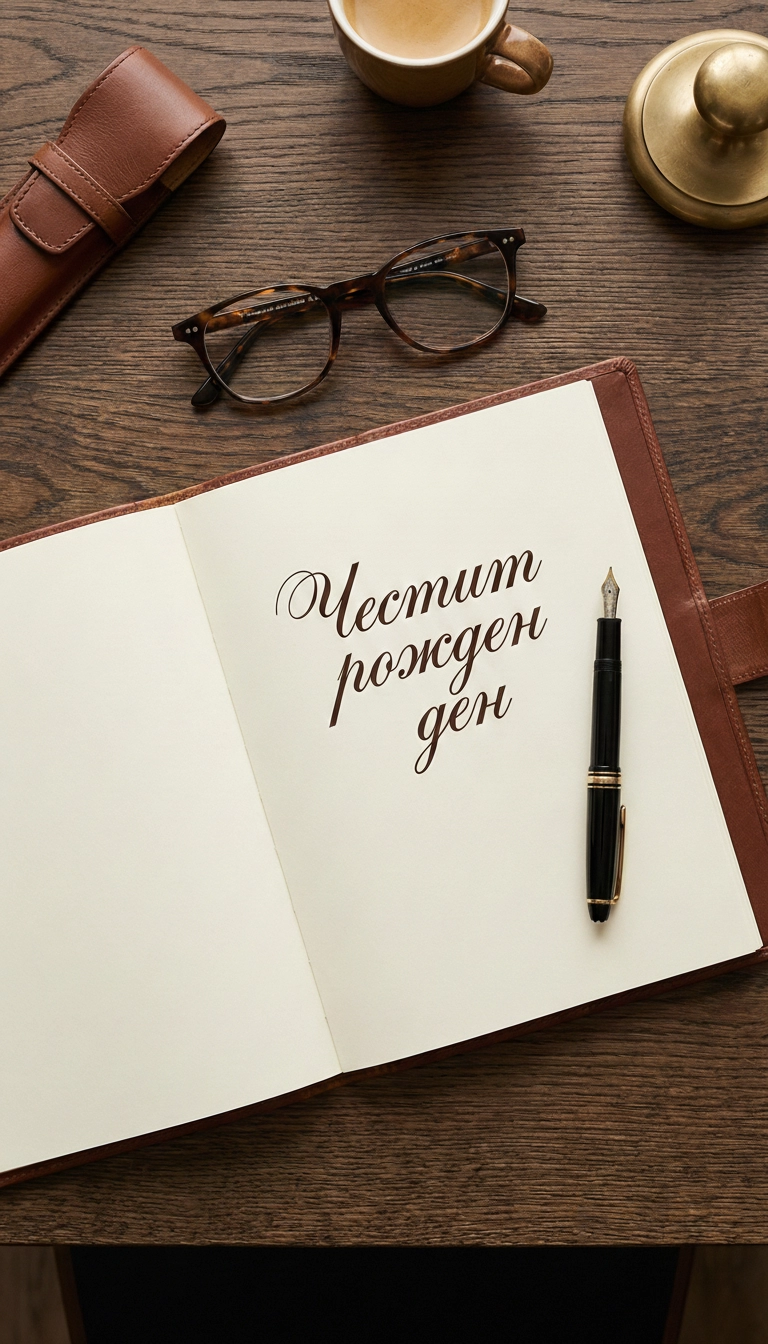 Честит
рожден
ден